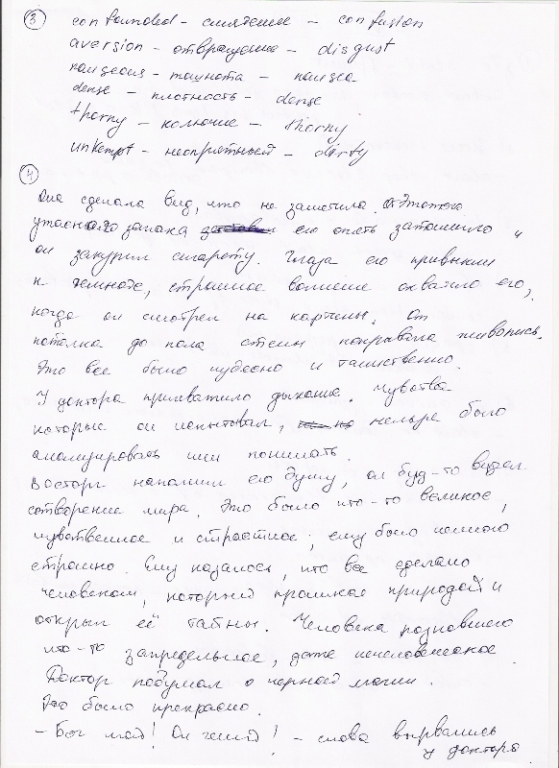 ③ confounded - смятение - confusion
aversion - отвращение - disgust
nauseous - тошнота - nausea
dense - плотность - dense
thorny - колючие - thorny
unkempt - неопрятный - dirty
④
Она сделала вид, что не заметила. От этого
ужасного запаха его опять затошнило и
он закурил сигарету. Глаза его привыкли
к темноте, страшное волнение охватило его,
когда он смотрел на картины. От
потолка до пола стены покрывала живопись.
Это все было чудесно и таинственно.
У доктора прихватило дыхание. Чувства
которые он испытывал, нельзя было
анализировать или понимать.
Восторг наполнил его душу, он буд-то видел
сотворение мира. Это было что-то великое,
чувственное и страстное; ему было немного
страшно. Ему казалось, что все сделано
человеком, который проникся природой и
открыл её тайны. Человека познавшего
что-то запредельное, даже нечеловеческое.
Доктор подумал о черной магии.
Это было прекрасно.
- Бог мой! Он гений! - слова вырвались
у доктора